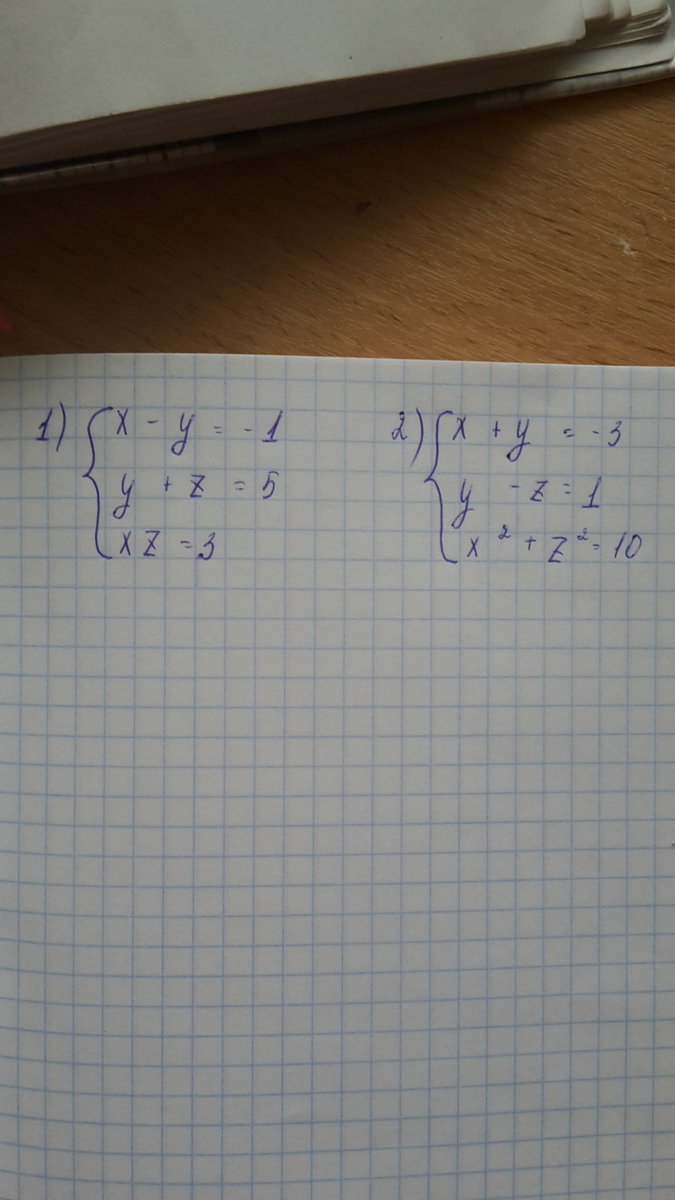 1) { x - y = -1
y + z = 5
xz = 3
2) { x + y = -3
y - z = 1
x² + z² = 10